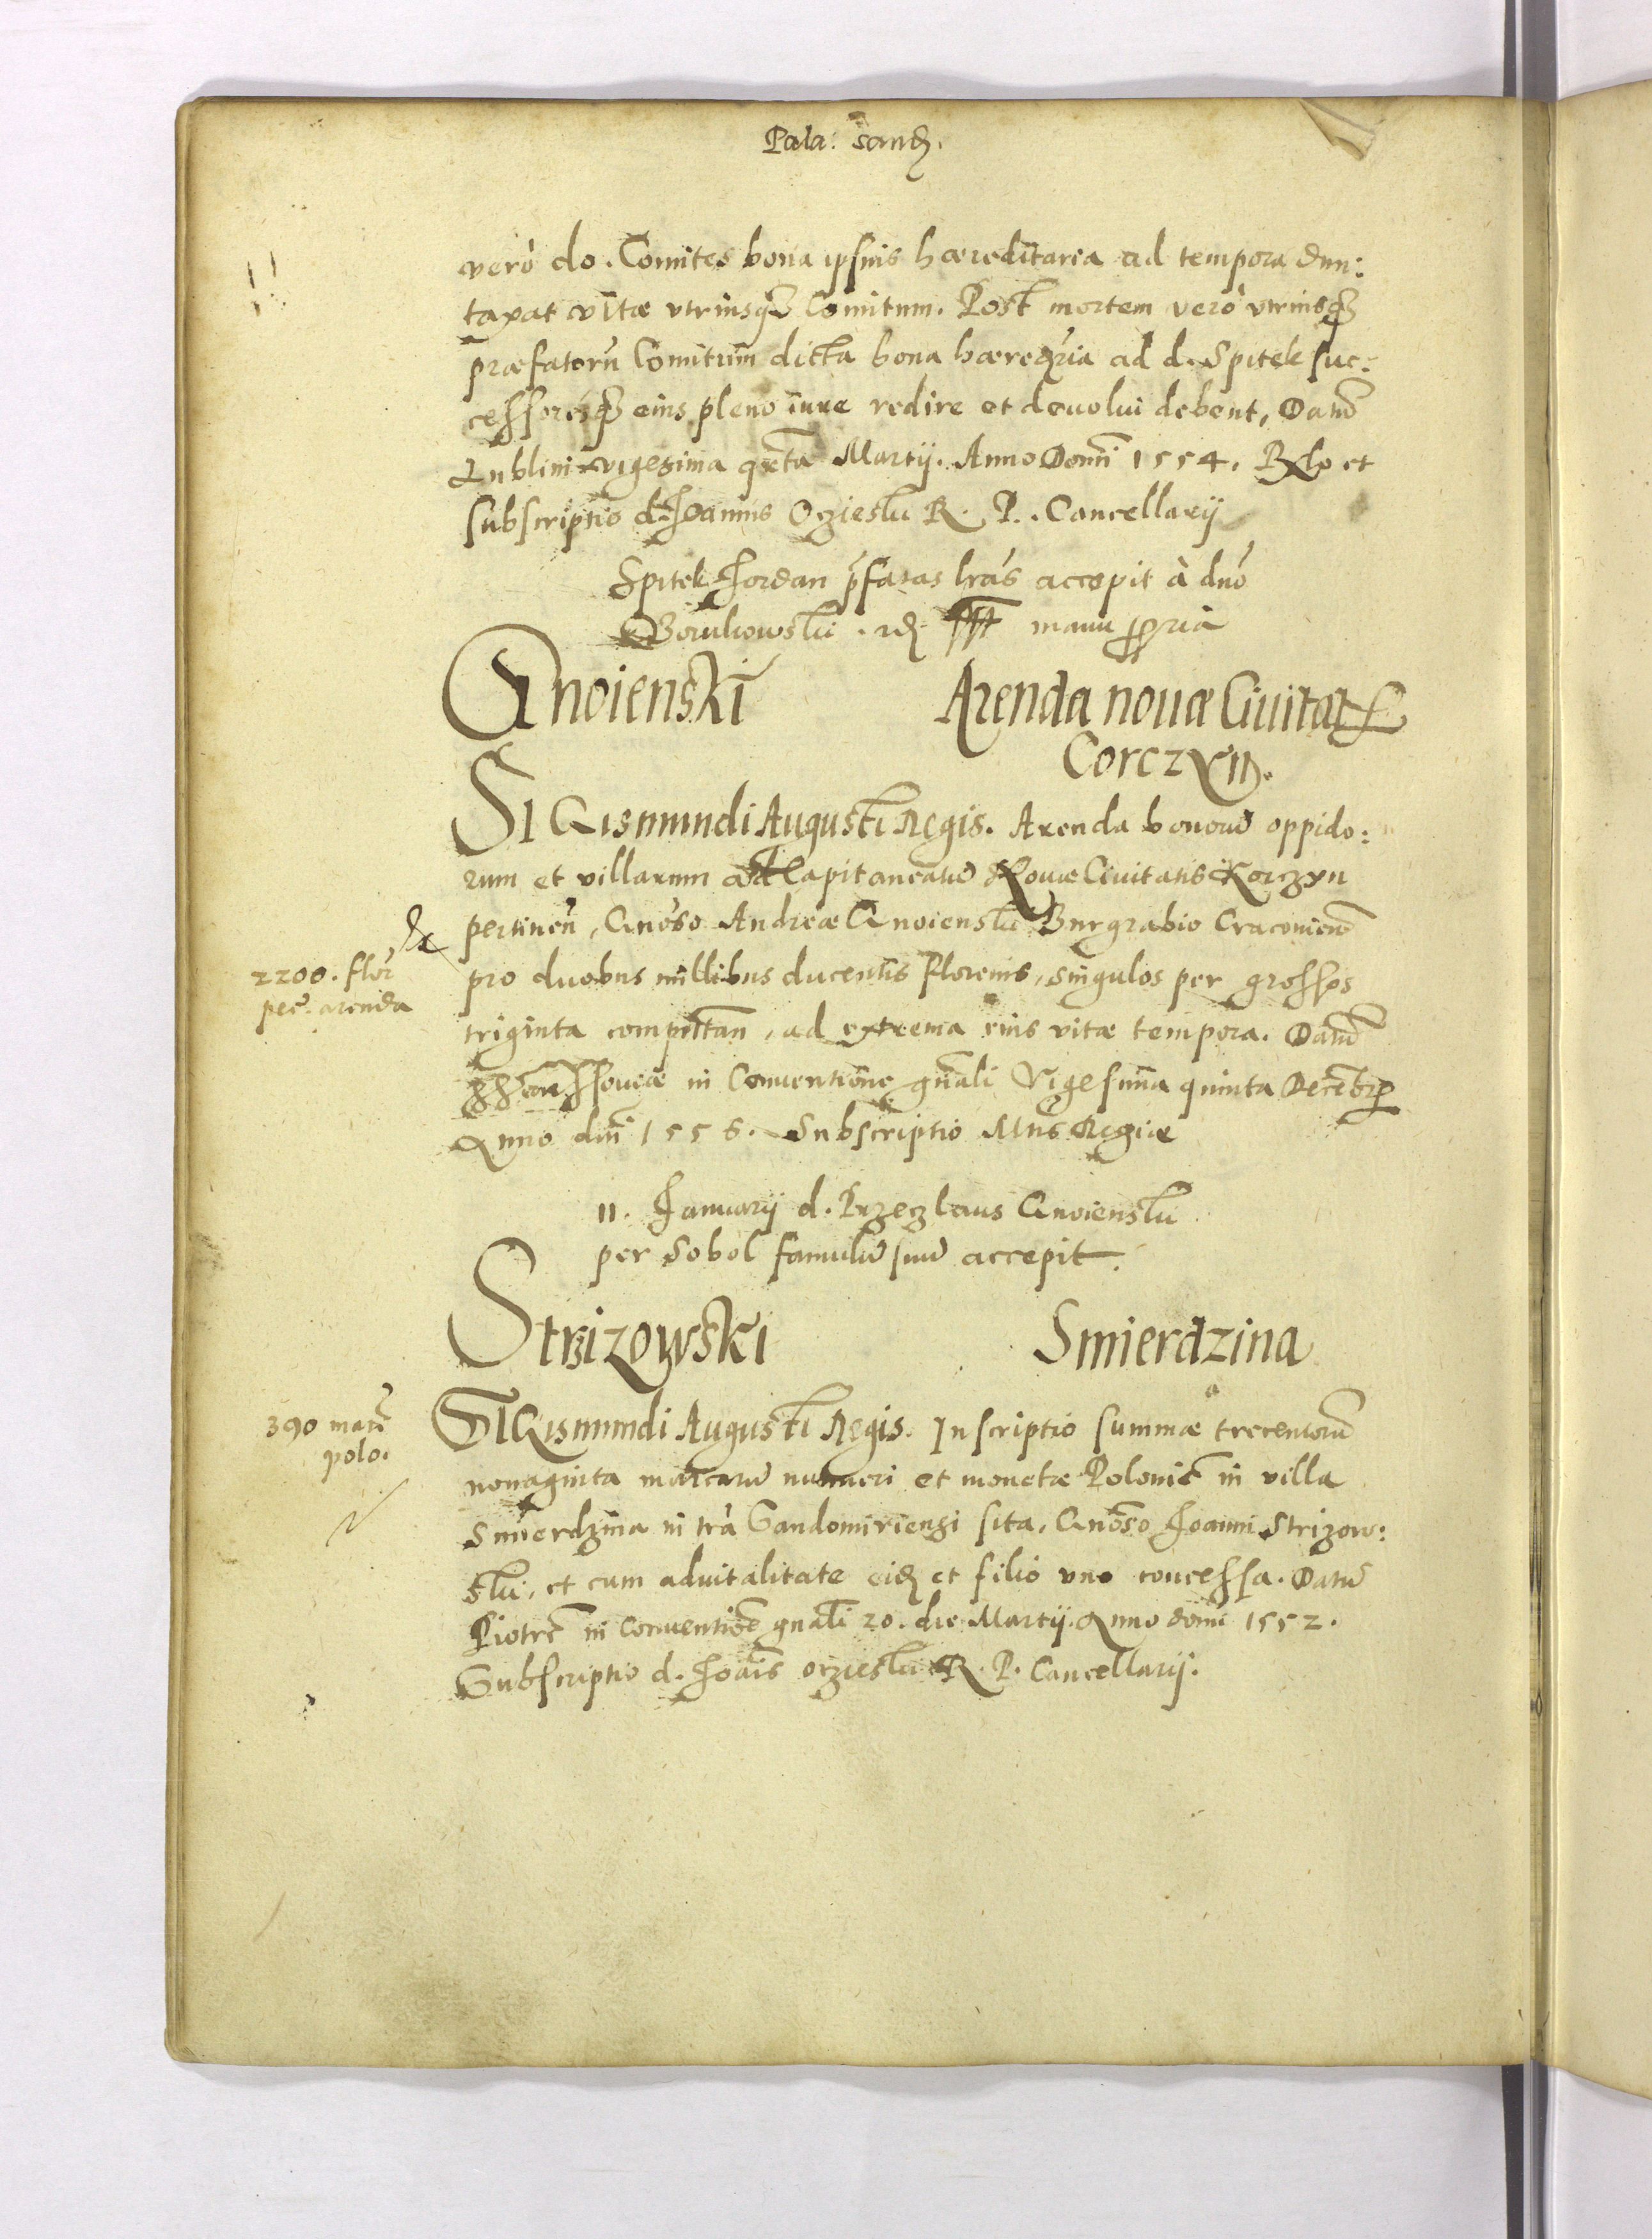 Pala: Sand.
vero do. Comites bona ipsius haereditaria ad tempora dun:
taxat vitae utriusq Comitum. Post mortem vero utriusq
praefatorū Comitum dicta bona haereria ad d. Spitek suc:
cessoresq eius pleno iure redire et devolui debent, Datū
Lublini vigesima Martij. Anno Domi 1554. Rlo et
subscriptio d. Joannis Oczieski R. P. Cancellarij
Spitek Jordan pfatas lrās accepit à dnō
Borukowski. manu ppria
Gnoienski
Arenda novae Civitatis
Corczyn.
SIGismundi Augusti Regis. Arenda bonorū oppido:
rum et villarum ad Capitaneatū Novae Civitatis Korczyn
pertinen, Gnōso Andreae Gnoienski Burgrabio Cracovien
2200. flor
per arenda
pro duobus millibus ducentis florenis, singulos per grossos
triginta computan, ad extrema eius vitae tempora. Datū
Varssoviae in Conventione gnali Vigesima quinta Decēbr
Anno dni 1556. Subscriptio Mtis Regiae
11. Januarij d. Przeczlaus Gnoienski
per Sobol famulū suū accepit.
Strizowski
Smierdzina
390 marc
polo.
SIGismundi Augusti Regis. Inscriptio summae trecentorū
nonaginta marcarū numeri et monetae Polonic in villa
Smierdzina in trā Sandomiriensi sita, Gnōso Joanni Strizow:
ski, et cum advitalitate eid et filio uno concessa. Datū
Piotrc in Conventiōe gnali 20. die Martij. Anno domi 1552.
Subscriptio d. Joāis Oczieski R. P. Cancellarij.